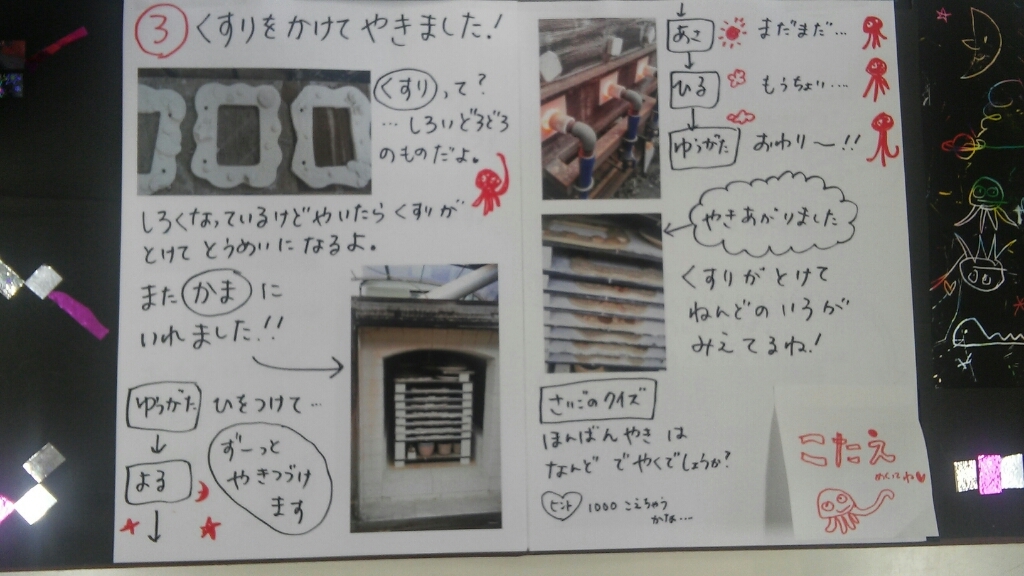 ③ くすりをかけて やきました!
くすり って?
… しろいどろどろ
のものだよ。
しろくなっているけどやいたら くすりが
とけて とうめいに なるよ。
また かま に
いれました!!
ゆうがた ひをつけて…
よる
ずーっと
やきつづけ
ます
あさ まだまだ…
ひる もうちょい…
ゆうがた おわり〜!!
やきあがりました
くすりがとけて
ねんどのいろが
みえてるね!
さいごのクイズ
ほんばんやき は
なんど でやくでしょうか?
ヒント 1000 こえちゃう
かな…
こたえ
めくってね